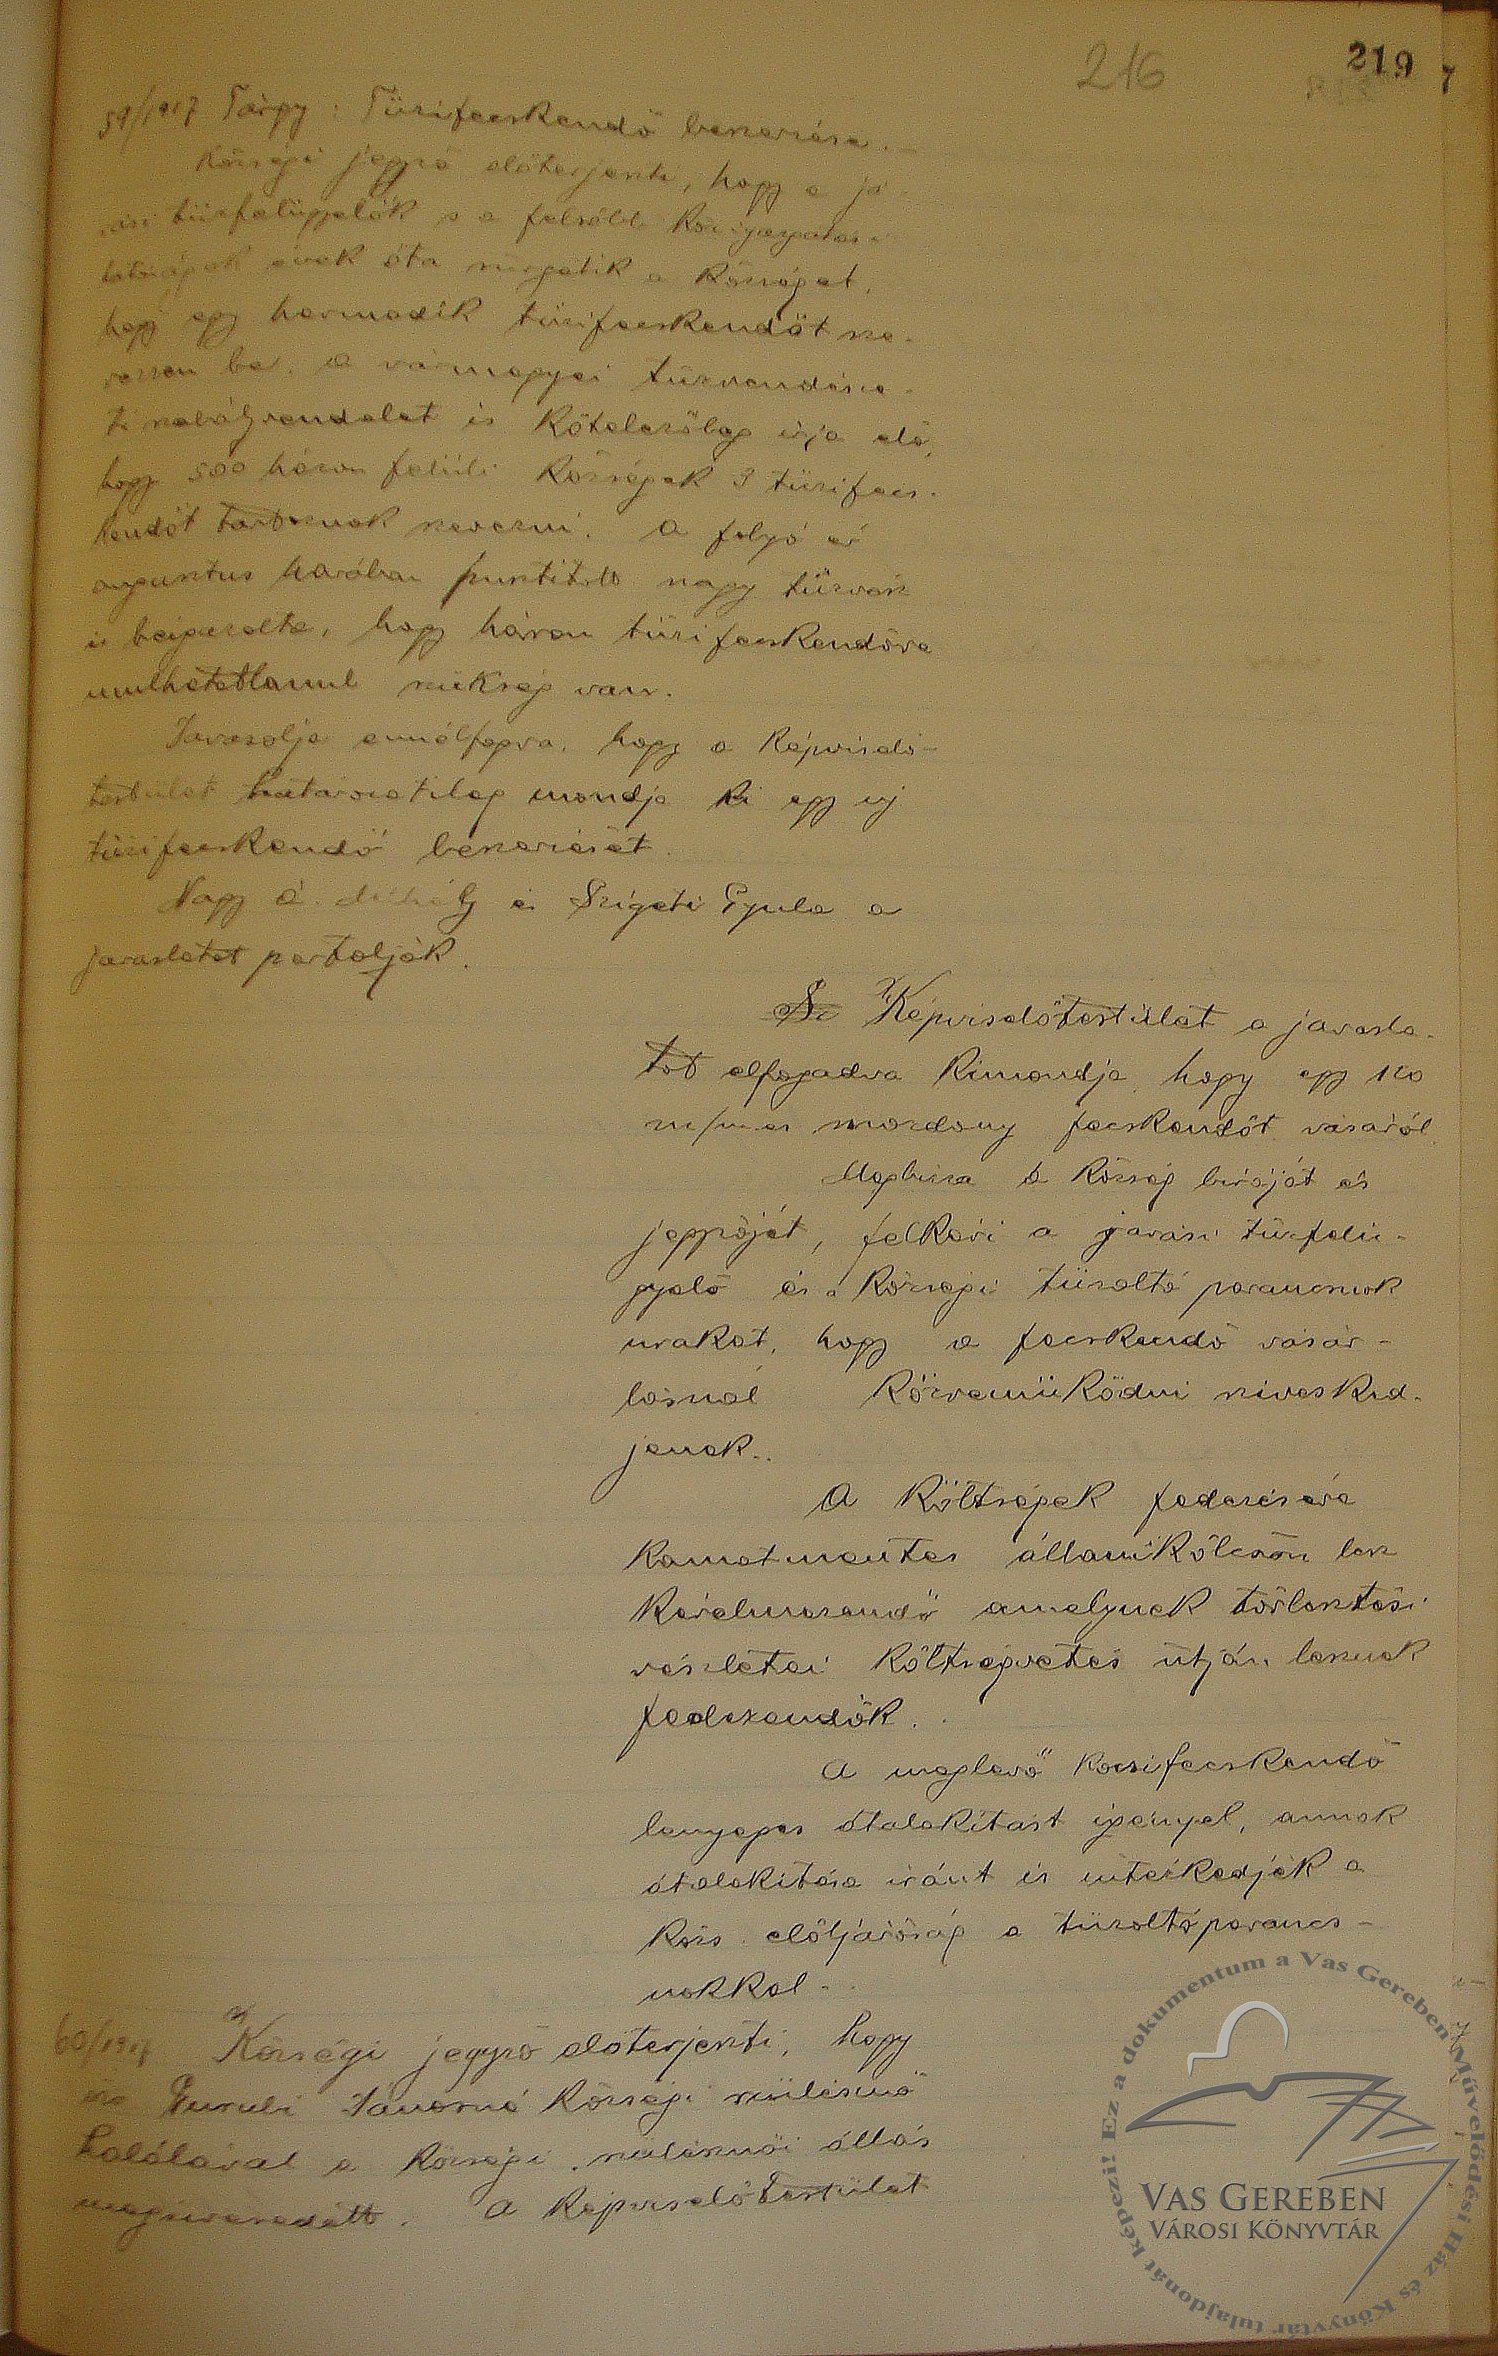 216
219
59/1917 Tárgy: Tüzifecskendő beszerzése.
Községi jegyző előterjeszti, hogy a já-
rási tűzfelügyelők s a felsőbb közigazgatási
hatóságok évek óta sürgetik a községet,
hogy egy harmadik tüzifecskendőt sze-
rezzen be. A vármegyei tűzrendésze-
ti szabályrendelet is kötelezőleg irja elő,
hogy 500 házon felüli községek 3 tüzifecs-
kendőt tartoznak szerezni. A folyó évi
augusztus havában pusztitott nagy tűzvész
is beigazolta, hogy három tüzifecskendőre
mulhatatlanul szükség van.
Javasolja ennélfogva, hogy a képviselő-
testület határozatilag mondja ki egy uj
tüzifecskendő beszerzését.
Nagy Á. Mihály és Szigeti Gyula a
javaslatot pártolják.
A Képviselőtestület a javasla-
tot elfogadva kimondja, hogy egy 120
m/m-es mozdony fecskendőt vásárol.
Megbizza a község biráját és
jegyzőjét, felkéri a járási tűzfelü-
gyelő és a községi tűzoltó parancsnok
urakat, hogy a fecskendő vásár-
lásnál közremüködni szivesked-
jenek.
A költségek fedezésére
kamatmentes államikölcsön lesz
kérelmezendő amelynek törlesztési
részletei költségvetés útján lesznek
fedezendők.
A meglevő kocsifecskendő
lényeges átalakitást igényel, annak
átalakitása iránt is intézkedjék a
közs. elöljáróság a tűzoltóparancs-
nokkal.
60/1917 Községi jegyző előterjeszti, hogy
Jánosné községi szülésznő
halálával a községi szülésznői állás
megüresedett. A képviselőtestület
Ez a dokumentum a Vas Gereben Művelődési Ház és Könyvtár tulajdonát képezi!
VAS GEREBEN
VÁROSI KÖNYVTÁR